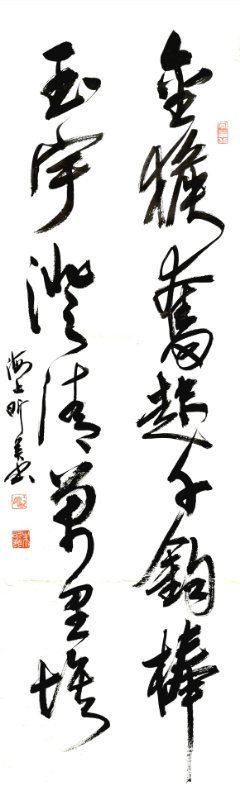 金猴奮起千鈞棒
玉宇澄清萬里埃
海上